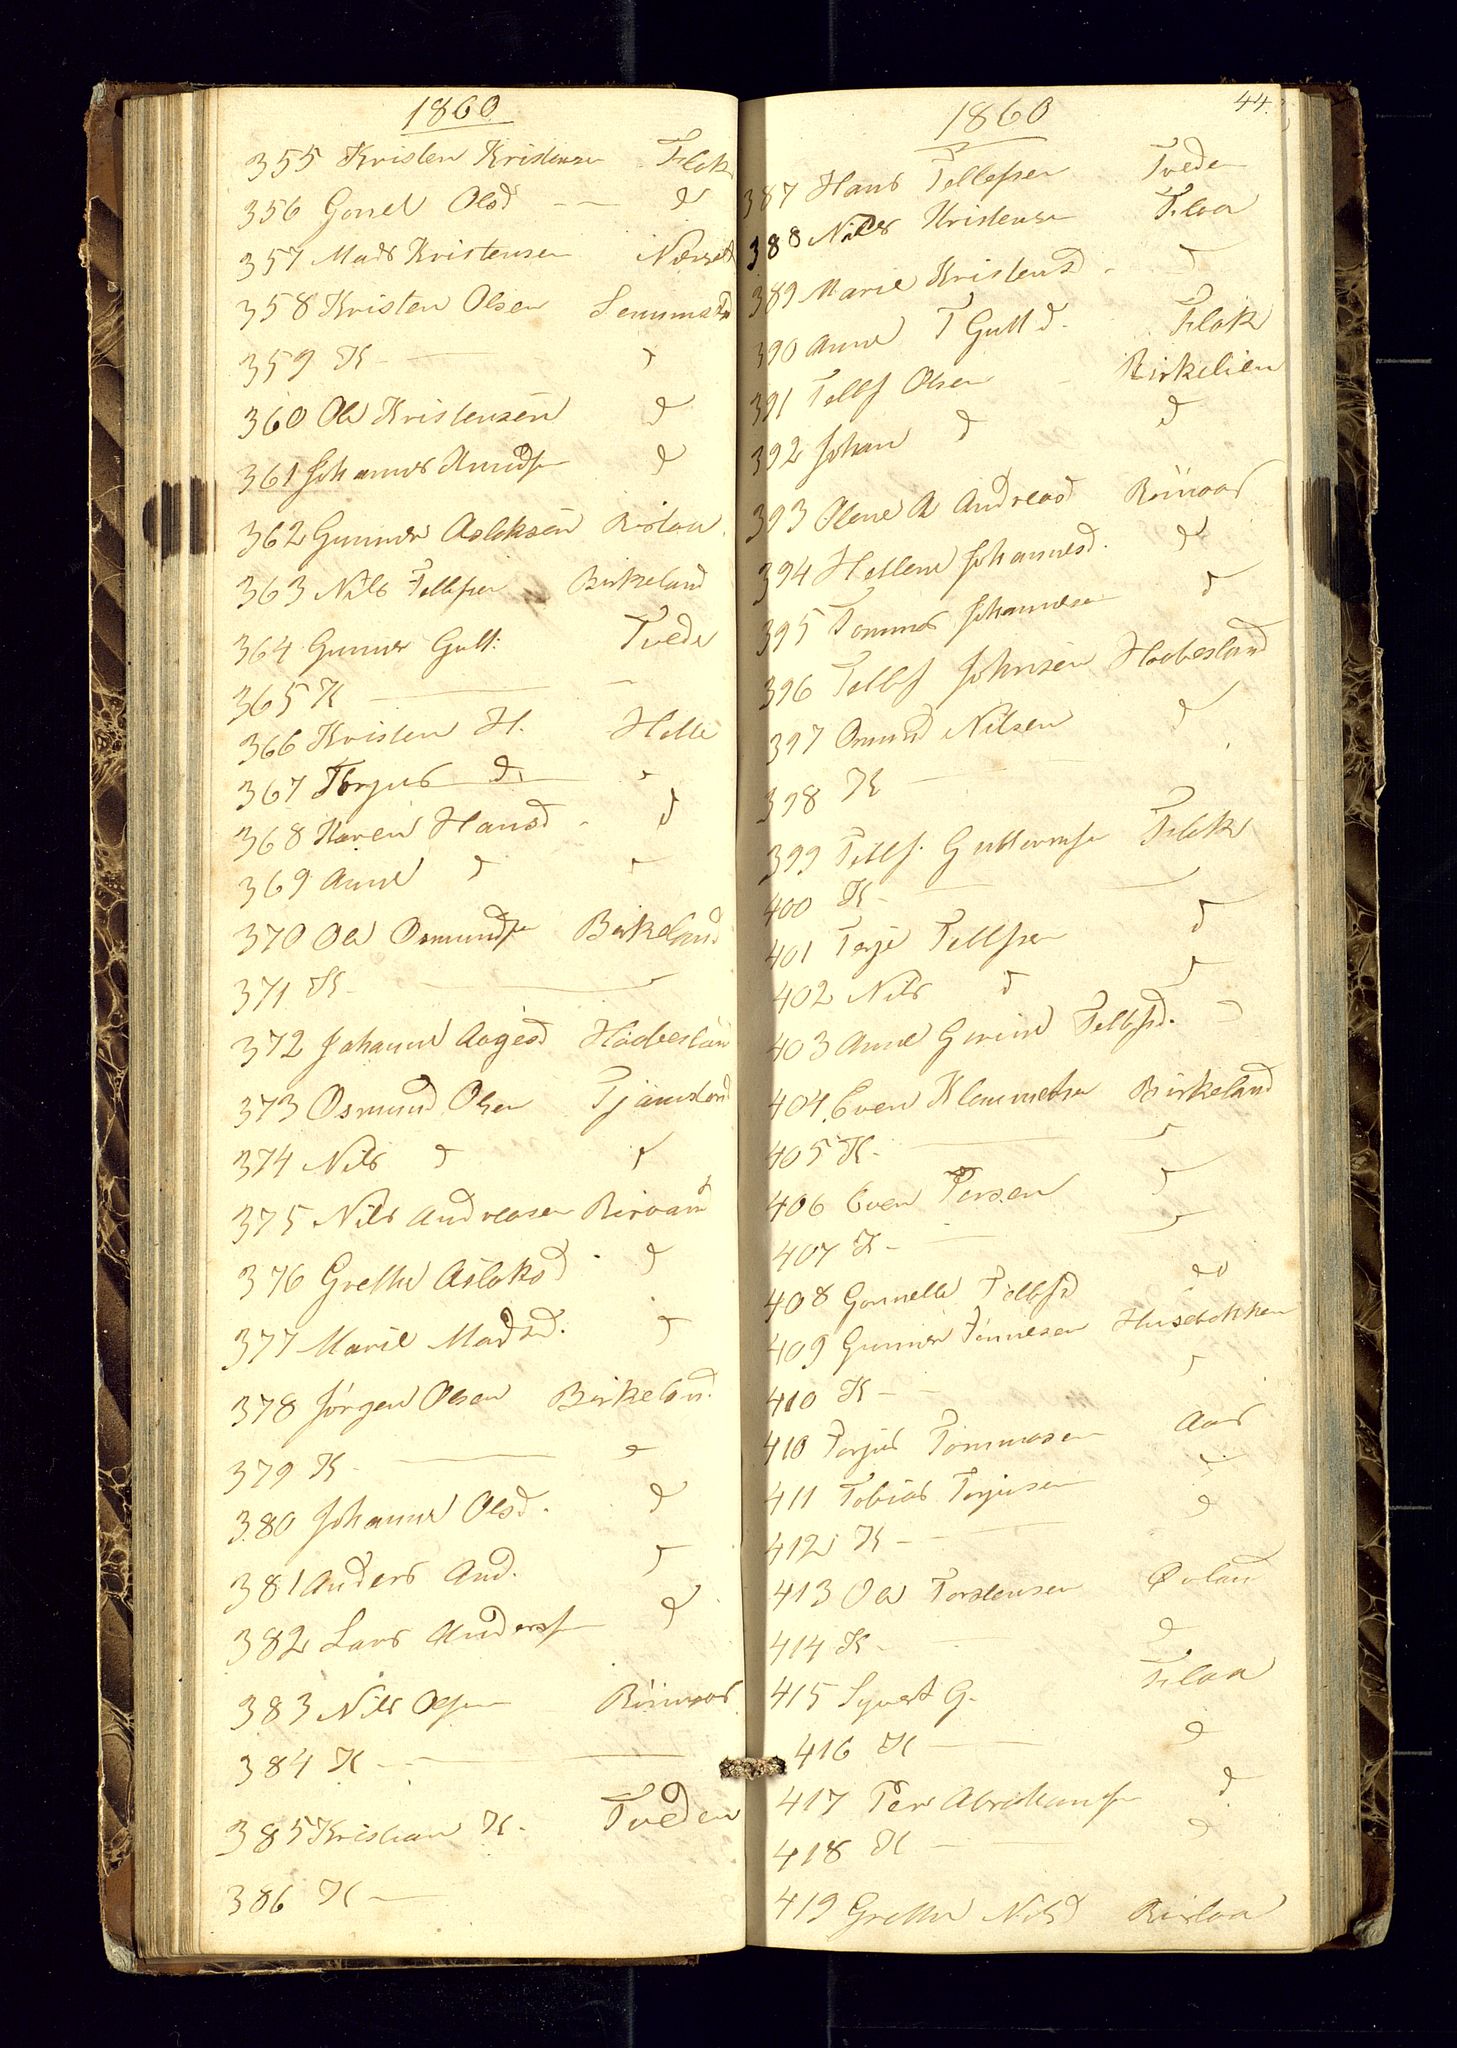 1860
355 Kristen Kristensen Flak
356 Gonel Olsd — d
357 Mads Kristensen
358 Kristen Olsen
359 K — d
360 Ole Kristensen d
361 Johannes Knudsn d
362 Gunner Aslaksen Rislaa
363 Nils Tellefsen Birkeland
364 Gunner Gutt: Tvede
365 K — —
366 Kristen H. Helle
367 Torjus d. "
368 Karen Hansd - d
369 Anne d "
370 Ole Osmundsn Birkeland
371 K —
372 Johanne Aagesd Haabesland
373 Osmund Olsen Tjämsland
374 Nils d d
375 Nils Andreasen
376 Grethe Aslaksd. d
377 Marie Madsd. d
378 Jørgen Olsen Birkeland
379 K — d
380 Johanne Olsd. d
381 Anders And. d
382 Lars Andersn d
383 Nils Olsen
384 K —
385 Kristian K. Tveden
386 K —
44.
1860
387 Hans Tellefsen Tveden
388 Nils Kristensen Flaa
389 Marie Kristensd - d
390 Anne T Guttd. Flak
391 Tellf Olsen - Birkelien
392 Johan d d
393 Olene A Andreasd
394 Hellene Johannesd. d
395 Tommas Johannesen d
396 Tellf Johnsen Haabesland
397 Osmund Nilsen d
398 K —
399 Tellf. Guttormsn Flak
400 K —
401 Terje Tellfsen d
402 Nils d d
403 Anne Gurine Tellfsd. d
404. Even Klemmetsen Birkeland
405 K. — d
406 Even Persen d
407 K — d
408 Gunnelle Tellfsd do
409 Gunner Tönnesen Husebakken
410 K — d
410 Torjus Tommasen Aas
411 Tobias Torjusen d
412 K — d
413 Ole Torstensen Øvland
414 K — d
415 Syvert G. Flaa
416 K — d
417 Per Abrahamsn d
418 K — d
419 Grethe Nilsd Rislaa